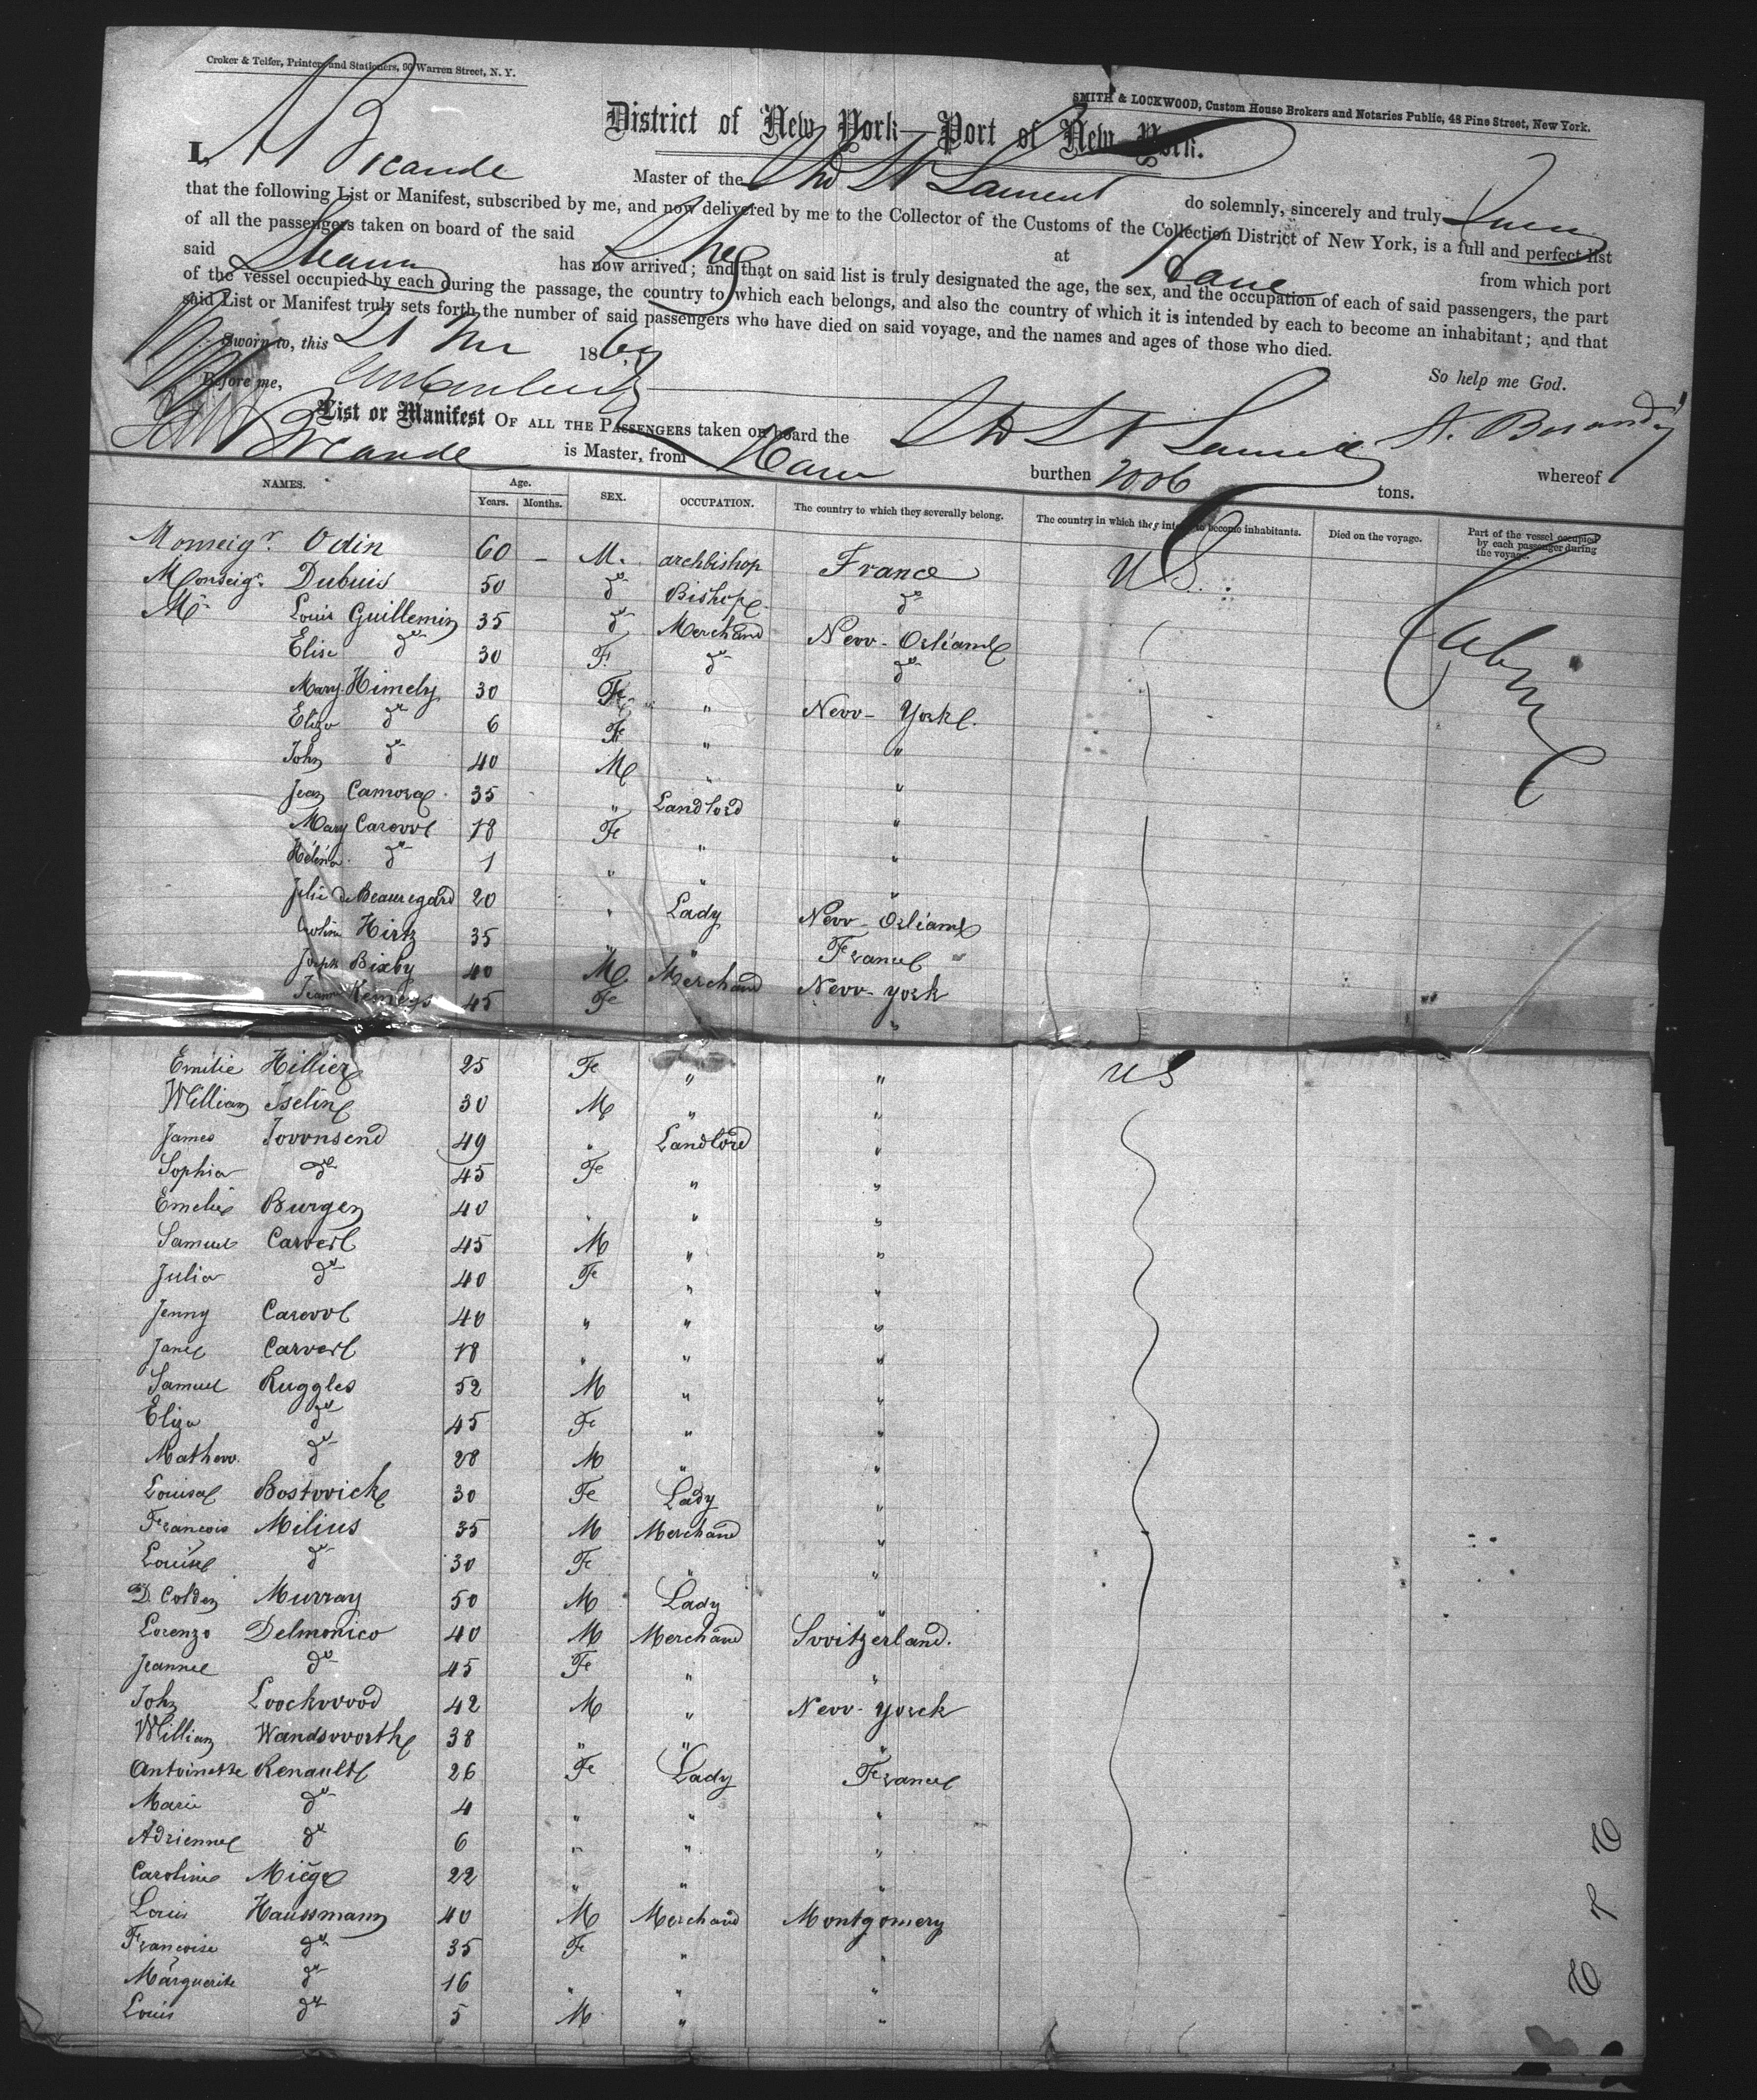 Croker & Telfer, Printers and Stationers, 90 Warren Street, N. Y.
SMITH & LOCKWOOD, Custom House Brokers and Notaries Public, 48 Pine Street, New York.
District of New York—Port of New York.
I, A Bocande Master of the St Laurent do solemnly, sincerely and truly swear
that the following List or Manifest, subscribed by me, and now delivered by me to the Collector of the Customs of the Collection District of New York, is a full and perfect list
of all the passengers taken on board of the said Ship at Havre from which port
said Steamer has now arrived; and that on said list is truly designated the age, the sex, and the occupation of each of said passengers, the part
of the vessel occupied by each during the passage, the country to which each belongs, and also the country of which it is intended by each to become an inhabitant; and that
said List or Manifest truly sets forth the number of said passengers who have died on said voyage, and the names and ages of those who died.
Sworn to, this 21 1869
So help me God.
Before me,
List or Manifest OF ALL THE PASSENGERS taken on board the St Laurent whereof
Bocande is Master, from Havre burthen 2006 tons.
NAMES. Age. Years. Months. SEX. OCCUPATION. The country to which they severally belong. The country in which they intend to become inhabitants. Died on the voyage. Part of the vessel occupied by each passenger during the voyage.
Monseigr. Odin 60 – M. archbishop France U S. Cabin
Monseigr. Dubuis 50 do Bishop do
Mr. Louis Guillemin 35 do Merchand Nevv-Orléans
Elise do 30 F. do do
Mary Himely 30 Fe " Nevv-York
Eliza do 6 Fe " "
John do 40 M " "
Jean Camorac 35 " Landlord "
Mary Carovvl 18 Fe " "
Héléna do 1 " " "
Julie de Beauregard 20 " Lady Nevv-Orléans
Caroline Hirtz 35 " " France "
Joseph Bixby 40 M Merchand Nevv-york
Jeanne Kemeys 45 Fe "
Emilie Hillier 25 Fe " " U S
William Iselin 30 M " "
James Tovvnsend 49 " Landlord "
Sophia do 45 Fe " "
Emelie Burgen 40 " " "
Samuel Carverl 45 M " "
Julia do 40 Fe " "
Jenny Carovvl 40 " " "
Jane Carverl 18 " " "
Samuel Ruggles 52 M " "
Eliza do 45 Fe " "
Mathevv. do 28 M " "
Louisa Bostvvick 30 Fe Lady "
François Milius 35 M Merchand "
Louise do 30 Fe " "
D. Colden Murray 50 M Lady "
Lorenzo Delmonico 40 M Merchand Svvitzerland.
Jeanne do 45 Fe " "
John Loockvvood 42 M " Nevv-yorck
William Wandsvvorth 38 " " "
Antoinette Renault 26 Fe Lady France
Marie do 4 " " "
Adrienne do 6 " " "
Caroline Miège 22 " " "
Louis Haussmann 40 M Merchand Montgomery
Françoise do 35 Fe " "
Marguerite do 16 " " "
Louis do 5 M " "